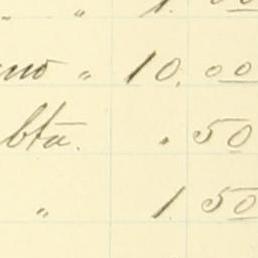 " 1. 00
" 10. 00
bta. . 50
" 1 50